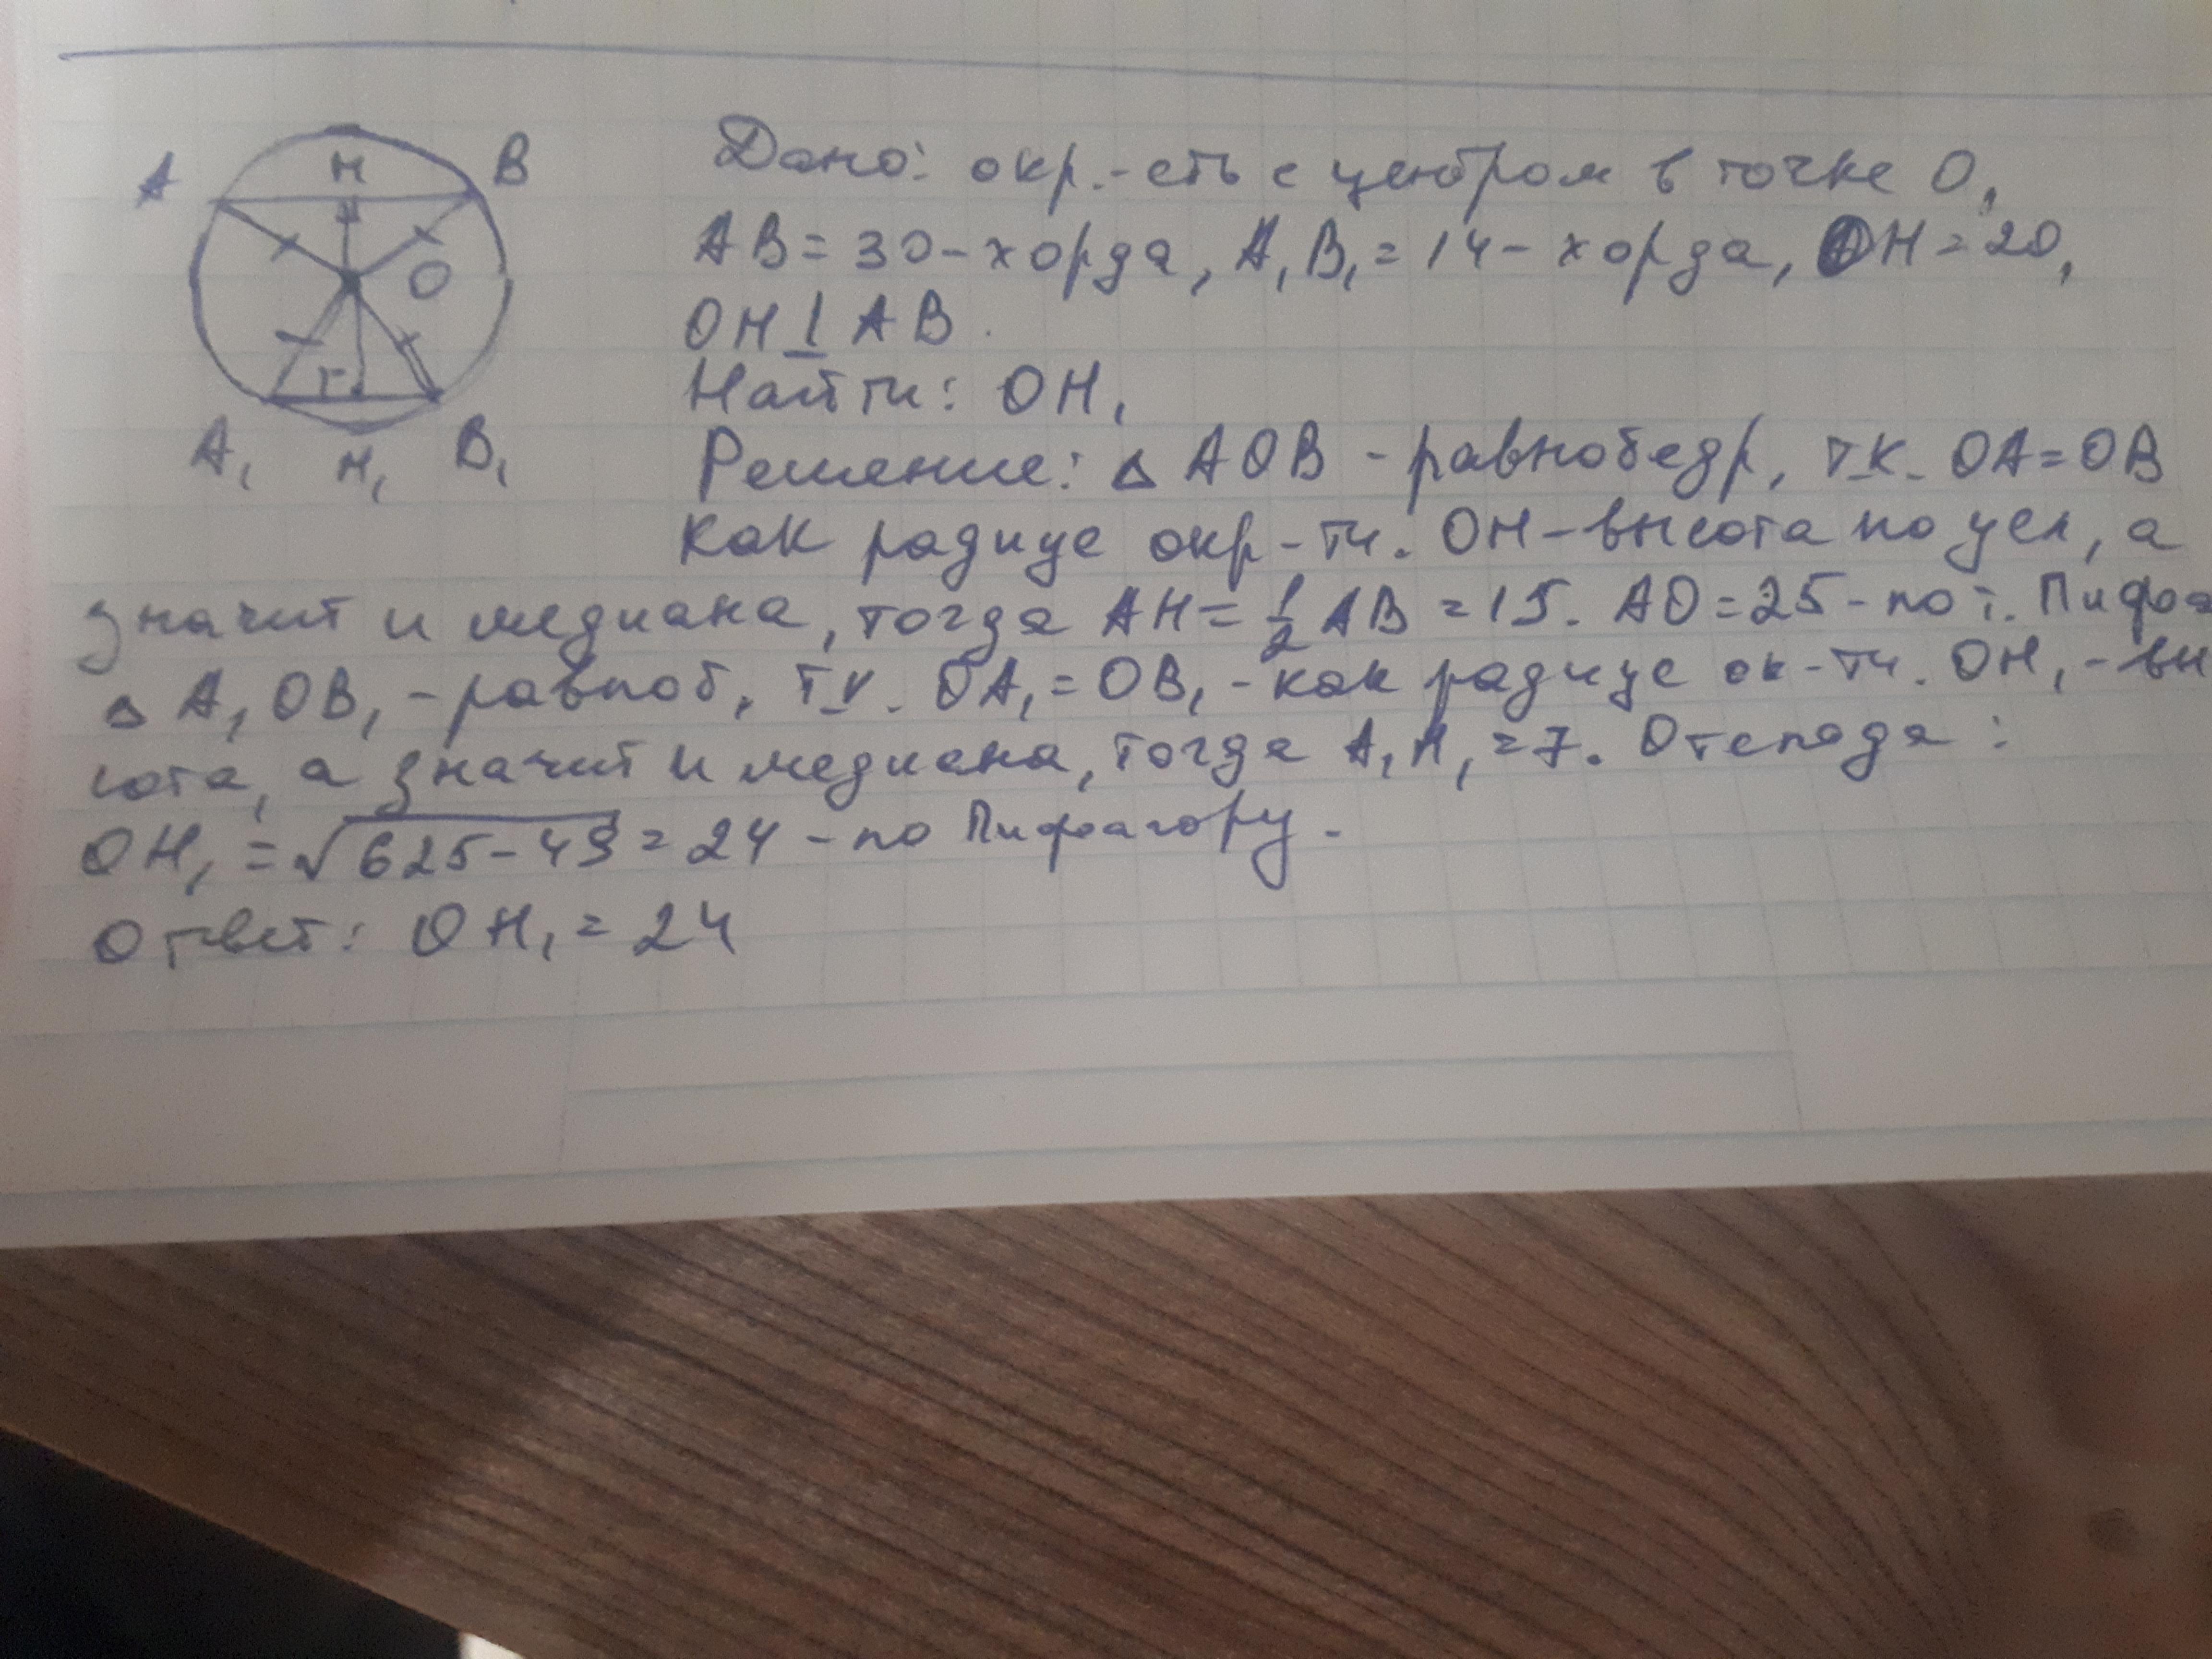 A H B
O
A₁ H₁ B₁
Дано: окр.-сть с центром в точке О,
AB = 30 - хорда, A₁B₁ = 14 - хорда, OH = 20,
OH ⊥ AB.
Найти: OH₁
Решение: △ AOB - равнобедр, т.к. OA = OB
как радиус окр-ти. OH - высота по усл, а
значит и медиана, тогда AH = 1/2 AB = 15. AO = 25 - по т. Пифа
△ A₁OB₁ - равноб, т.к. OA₁ = OB₁ - как радиус ок-ти. OH₁ - вы
сота, а значит и медиана, тогда A₁H₁ = 7. Отсюда:
OH₁ = √625 - 49 = 24 - по Пифагору.
Ответ: OH₁ = 24